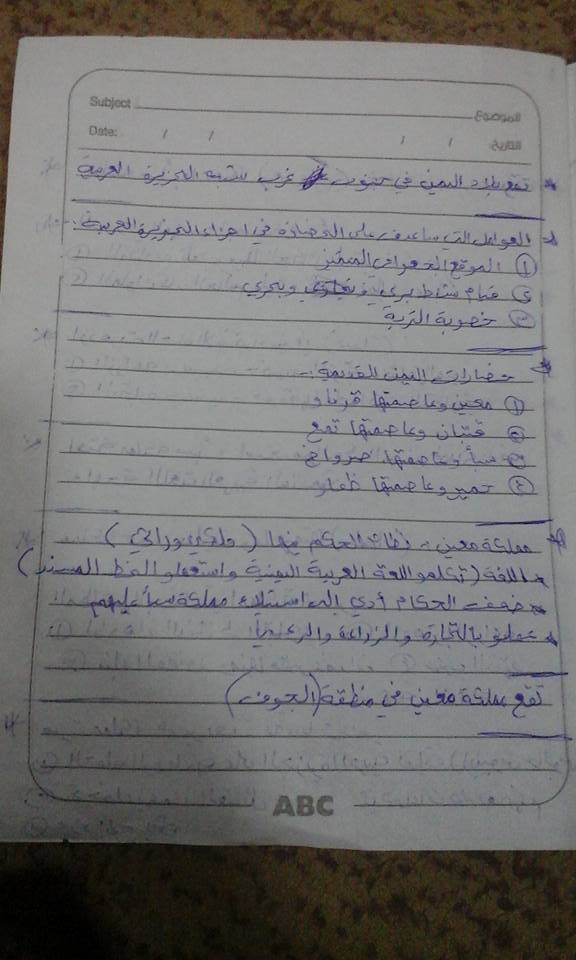 Subject الموضوع
Date: / / / / التاريخ
تقع بلاد اليمن في جنوب غرب شبه الجزيرة العربية
العوامل التي ساعدت على الحضارة في اجزاء الجزيرة العربية :-
① الموقع الجغرافي المتميز
② قيام نشاط بري وبحري
③ خصوبة التربة
حضارات اليمن القديمة :-
① معين وعاصمتها قرناو
② قتبان وعاصمتها تمنع
③ سبأ وعاصمتها صرواح
④ حمير وعاصمتها ظفار
مملكة معين :- نظام الحكم فيها ( ملكي وراثي )
اللغة ( تكلمو اللغة العربية اليمنية واستعملو الخط المسند )
ضعف الحكام أدى الى استيلاء مملكة سبأ عليهم
عملو بالتجارة والزراعة والرعي
تقع مملكة معين في منطقة (الجوف)
ABC